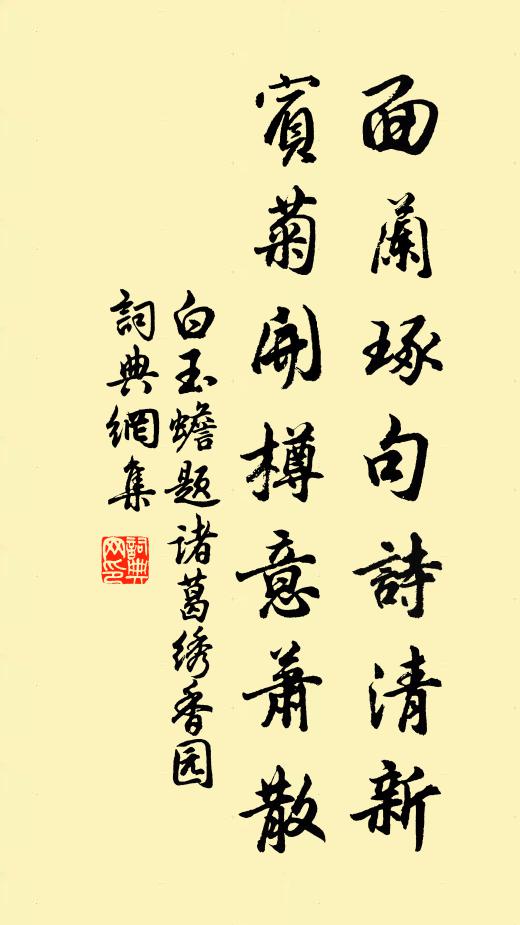 面蘭琢句詩清新
賓菊開樽意蕭散
白玉蟾题诸葛绣香园
詞典網集
詞典网印